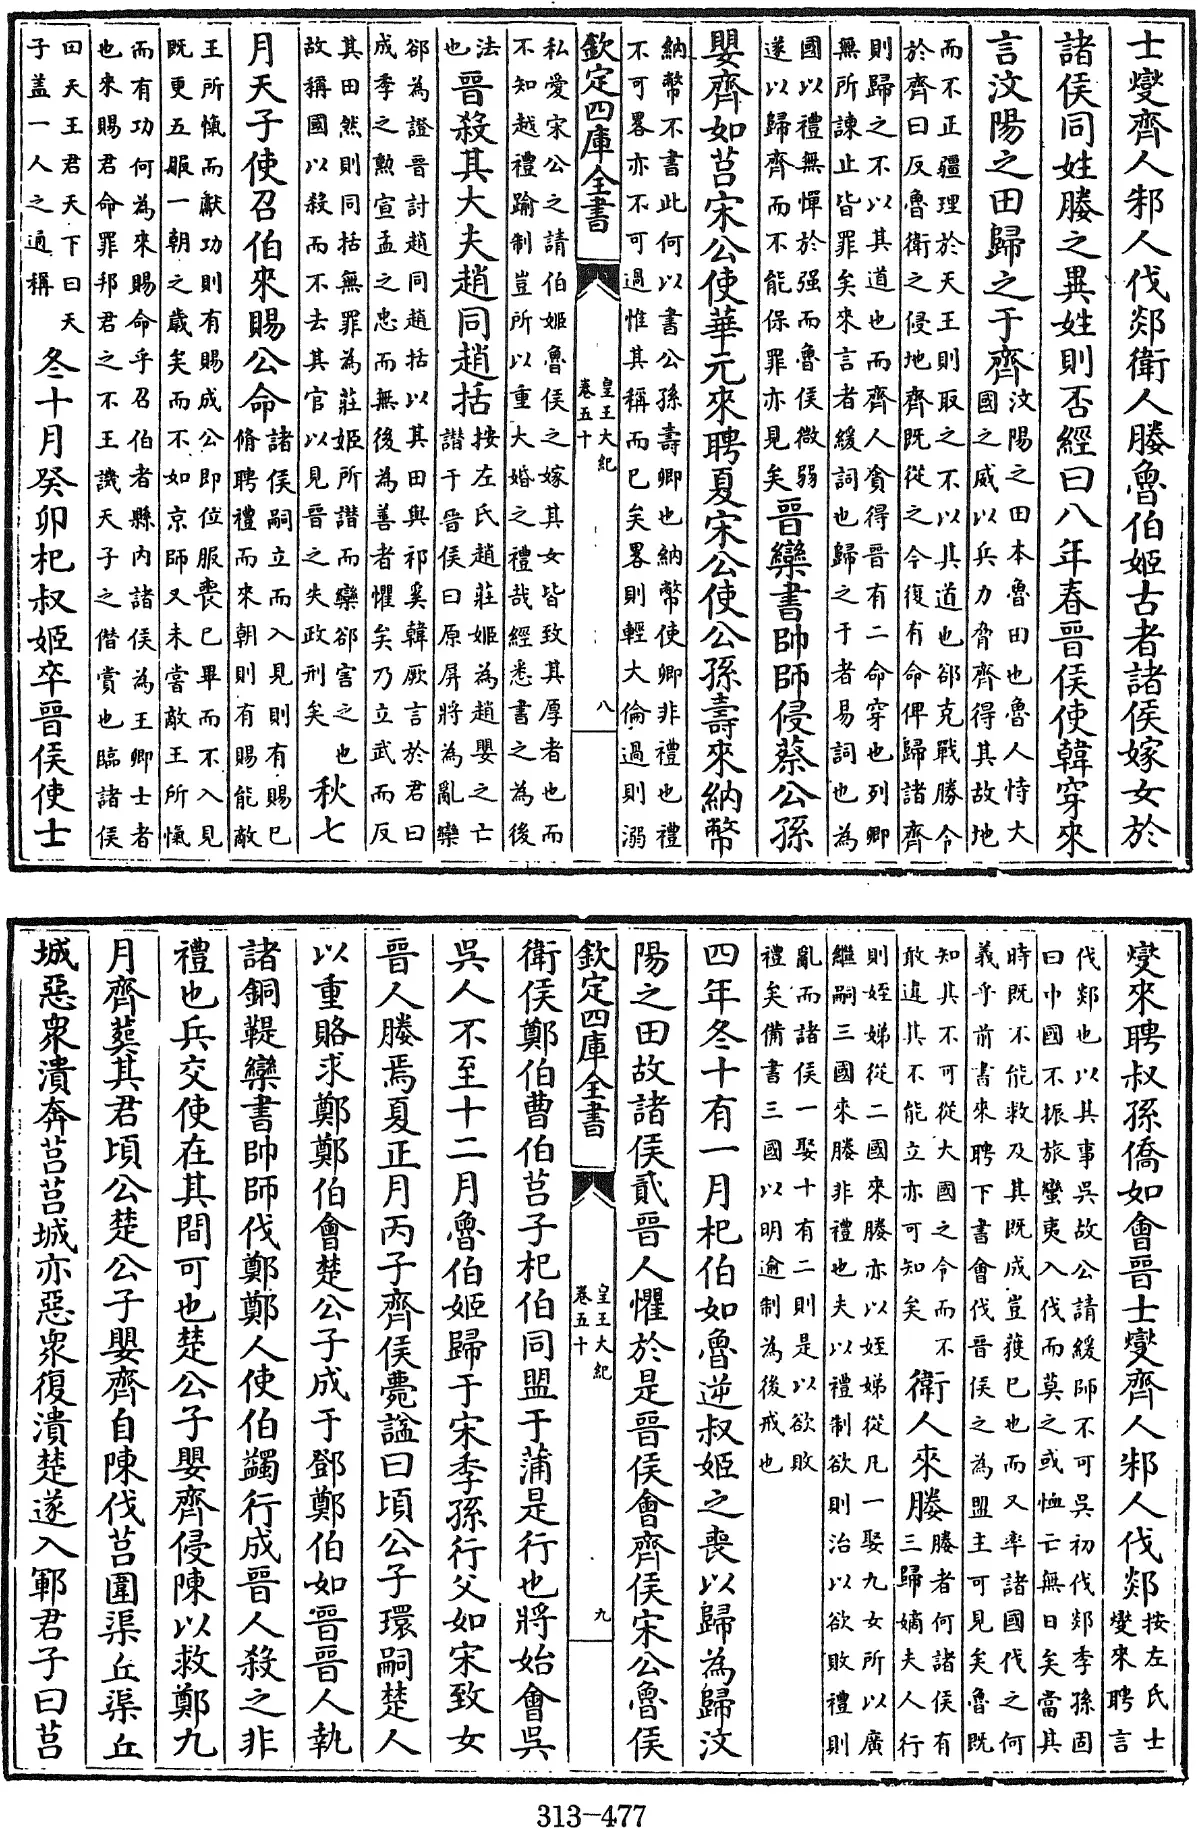 士燮齊人邾人伐郯衛人媵魯伯姬古者諸侯嫁女於
諸侯同姓媵之異姓則否經曰八年春晉侯使韓穿來
言汶陽之田歸之于齊
汶陽之田本魯田也魯人恃大
國之威以兵力脅齊得其故地
而不正疆理於天王則取之不以其道也郤克戰勝令
於齊曰反魯衛之侵地齊既從之今復有命俾歸諸齊
則歸之不以其道也而齊人貪得晉有二命穿也列卿
無所諫止皆罪矣來言者緩詞也歸之于者易詞也為
國以禮無憚於强而魯侯微弱
遂以歸齊而不能保罪亦見矣
晉欒書帥師侵蔡公孫
嬰齊如莒宋公使華元來聘夏宋公使公孫壽來納幣
納幣不書此何以書公孫壽卿也納幣使卿非禮也禮
不可畧亦不可過惟其稱而已矣畧則輕大倫過則溺
欽定四庫全書
皇王大紀
卷五十
八
私愛宋公之請伯姬魯侯之嫁其女皆致其厚者也而
不知越禮踰制豈所以重大婚之禮哉經悉書之為後
法
也
晉殺其大夫趙同趙括
按左氏趙莊姬為趙嬰之亡
譖于晉侯曰原屏將為亂欒
郤為證晉討趙同趙括以其田與祁奚韓厥言於君曰
成季之勲宣孟之忠而無後為善者懼矣乃立武而反
其田然則同括無罪為莊姬所譖而欒郤害之也
故稱國以殺而不去其官以見晉之失政刑矣
秋七
月天子使召伯來賜公命
諸侯嗣立而入見則有賜已
脩聘禮而來朝則有賜能敵
王所愾而獻功則有賜成公即位服喪已畢而不入見
既更五服一朝之歲矣而不如京師又未嘗敵王所愾
而有功何為來賜命乎召伯者縣內諸侯為王卿士者
也來賜君命罪邦君之不王譏天子之僭賞也臨諸侯
曰天王君天下曰天
子盖一人之通稱
冬十月癸卯杞叔姬卒晉侯使士
燮來聘叔孫僑如會晉士燮齊人邾人伐郯
按左氏士
燮來聘言
伐郯也以其事吳故公請緩師不可吳初伐郯季孫固
曰中國不振旅蠻夷入伐而莫之或恤亡無日矣當其
時既不能救及其既成豈獲已也而又率諸國伐之何
義乎前書來聘下書會伐晉侯之為盟主可見矣魯既
知其不可從大國之令而不
敢違其不能立亦可知矣
衛人來媵
媵者何諸侯有
三歸嫡夫人行
則姪娣從二國來媵亦以姪娣從凡一娶九女所以廣
繼嗣三國來媵非禮也夫以禮制欲則治以欲敗禮則
亂而諸侯一娶十有二則是以欲敗
禮矣備書三國以明逾制為後戒也
四年冬十有一月杞伯如魯逆叔姬之喪以歸為歸汶
陽之田故諸侯貳晉人懼於是晉侯會齊侯宋公魯侯
欽定四庫全書
皇王大紀
卷五十
九
衛侯鄭伯曹伯莒子杞伯同盟于蒲是行也將始會吳
吳人不至十二月魯伯姬歸于宋季孫行父如宋致女
晉人媵焉夏正月丙子齊侯薨諡曰頃公子環嗣楚人
以重賂求鄭鄭伯會楚公子成于鄧鄭伯如晉晉人執
諸銅鞮欒書帥師伐鄭鄭人使伯蠲行成晉人殺之非
禮也兵交使在其間可也楚公子嬰齊侵陳以救鄭九
月齊葬其君頃公楚公子嬰齊自陳伐莒圍渠丘渠丘
城惡衆潰奔莒莒城亦惡衆復潰楚遂入鄆君子曰莒
313-477